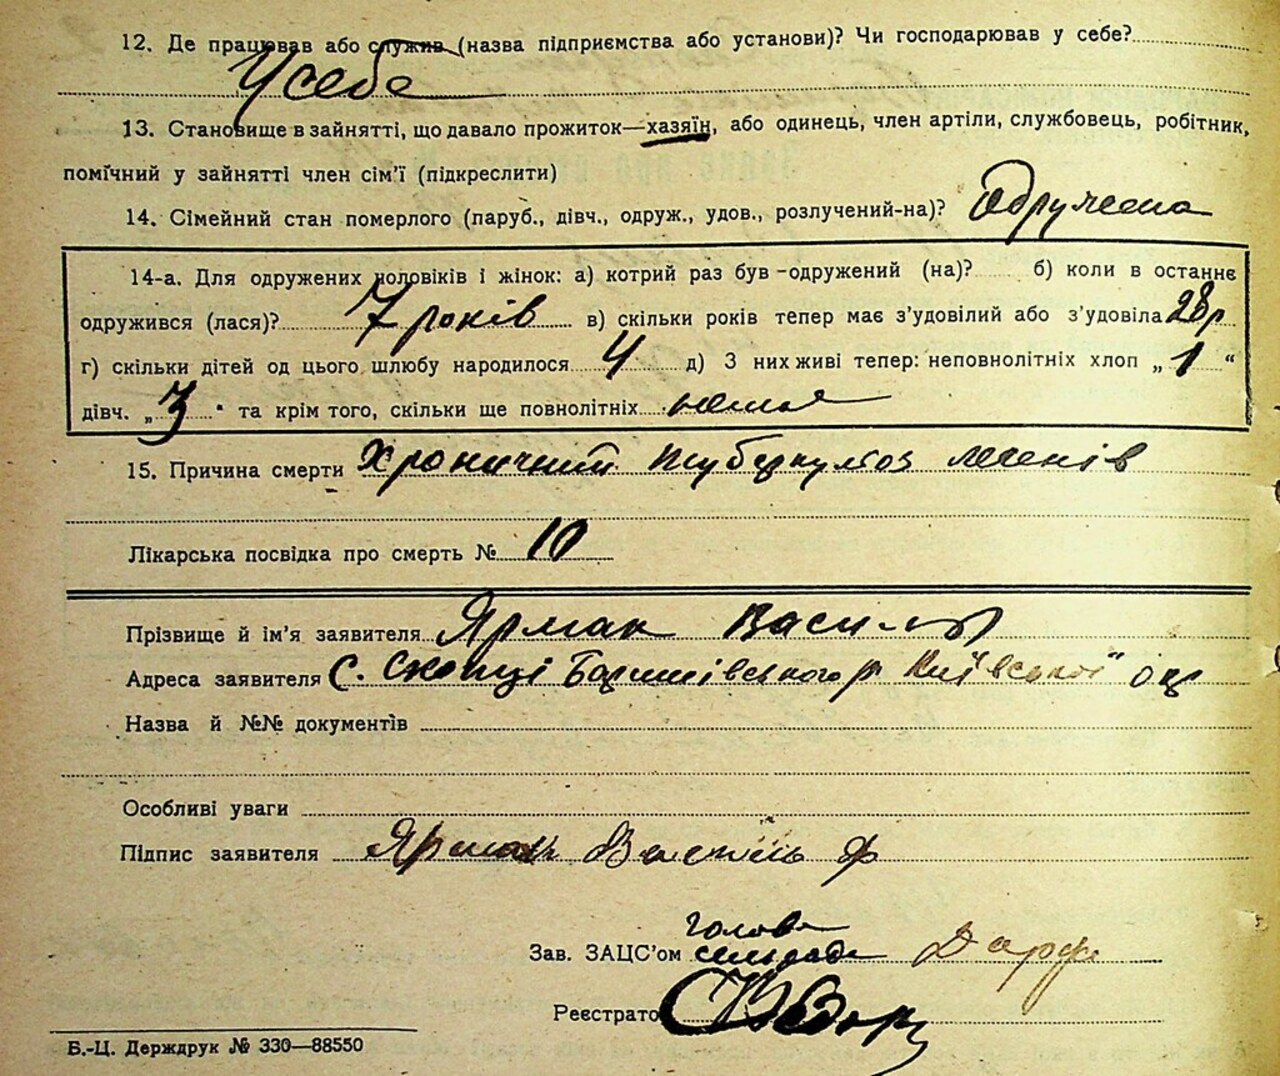 12. Де працював або служив (назва підприємства або установи)? Чи господарював у себе?
У себе
13. Становище в зайнятті, що давало прожиток—хазяїн, або одинець, член артілі, службовець, робітник,
помічний у зайнятті член сім'ї (підкреслити)
14. Сімейний стан померлого (паруб., дівч., одруж., удов., розлучений-на)? Одружена
14-а. Для одружених чоловіків і жінок: а) котрий раз був -одружений (на)? б) коли в останнє
одружився (лася)? 7 років в) скільки років тепер має з'удовілий або з'удовіла 28 р
г) скільки дітей од цього шлюбу народилося 4 д) З них живі тепер: неповнолітніх хлоп „ 1 "
дівч. „ 3 " та крім того, скільки ще повнолітніх нема
15. Причина смерти Хроничний туберкульоз легенів
Лікарська посвідка про смерть № 10
Прізвище й ім'я заявителя Ярмак Василь
Адреса заявителя С. Скопці Баришівського р Київської
Назва й №№ документів
Особливі уваги
Підпис заявителя Ярмак Василь Ф
голова
Зав. ЗАЦС'ом сільради
Реєстратор
Б.-Ц. Держдрук № 330—88550